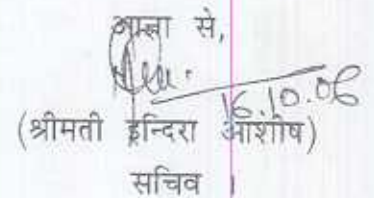 आज्ञा से,
16.10.06
(श्रीमती इन्दिरा आशीष)
सचिव ।